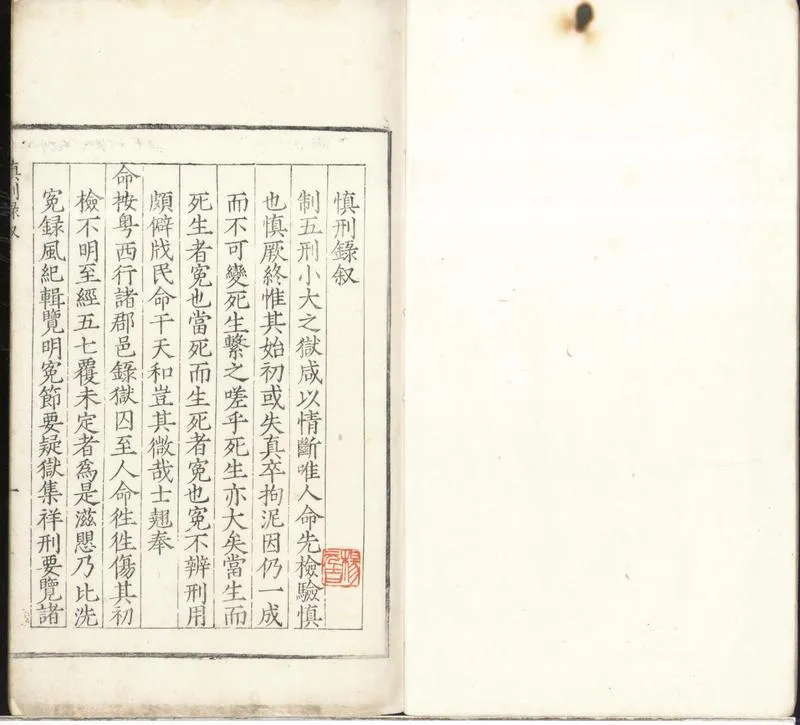 慎刑錄叙
制五刑小大之獄咸以情斷唯人命先檢驗慎
也慎厥終惟其始初或失真卒拘泥因仍一成
而不可變死生繫之嗟乎死生亦大矣當生而
死生者寃也當死而生死者寃也寃不辨刑用
頗僻戕民命干天和豈其微哉士翹奉
命按粤西行諸郡邑錄獄囚至人命徃徃傷其初
檢不明至經五七覆未定者爲是滋愳乃比洗
寃録風紀輯覽明寃節要疑獄集祥刑要覽諸
慎刑錄叙
一